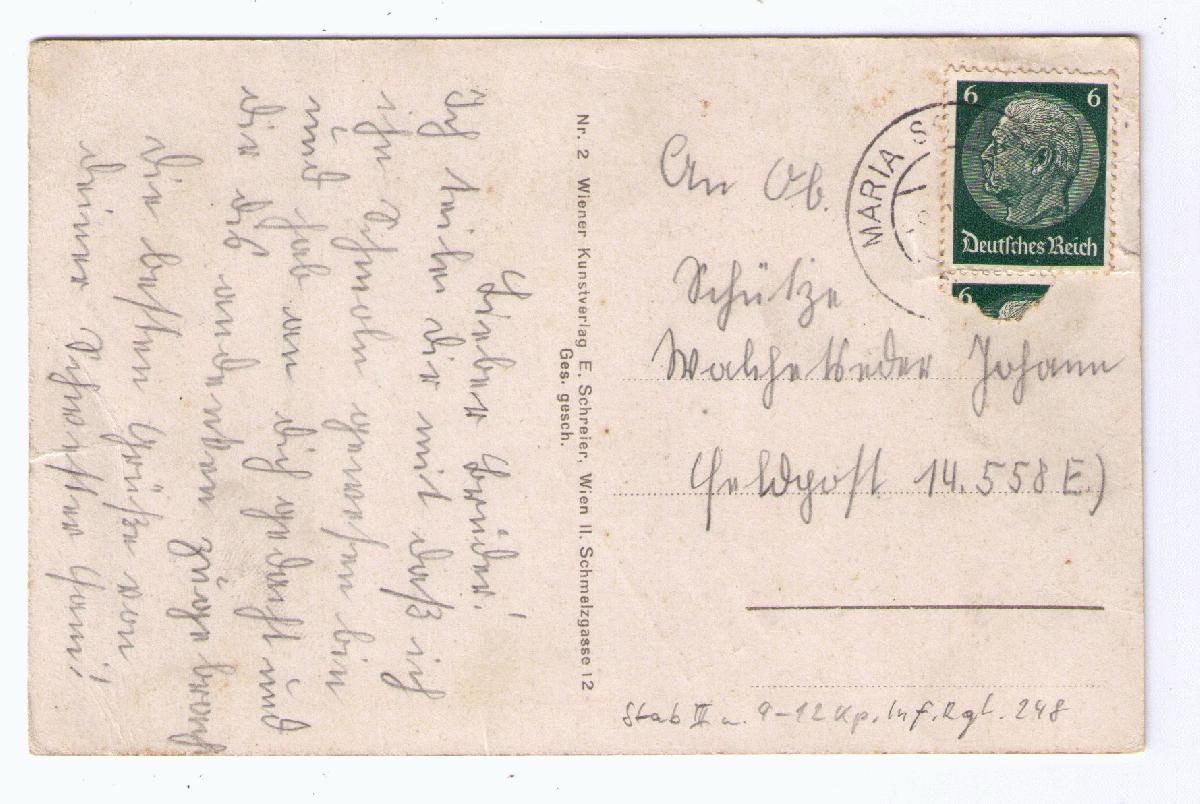 Lieber Bruder!
Ich teile dir mit daß ich
in Schmoln gewesen bin
und hab an dich gedacht und
dir dis andenken
Die besten Grüße von
deiner Schwester
Nr. 2 Wiener Kunstverlag E. Schreier, Wien II. Schmelzgasse 12
Ges. gesch.
MARIA
6 6
Deutsches Reich
6
An Ob.
Schütze
Johann
Feldpost 14.558 E.)
Stab III u. 9-12 Kp. Inf. Rgt. 248